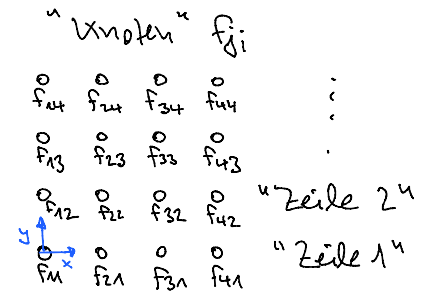 "Knoten" fji
f14 f24 f34 f44
f13 f23 f33 f43
f12 f22 f32 f42 "Zeile 2"
y
x
f11 f21 f31 f41 "Zeile 1"